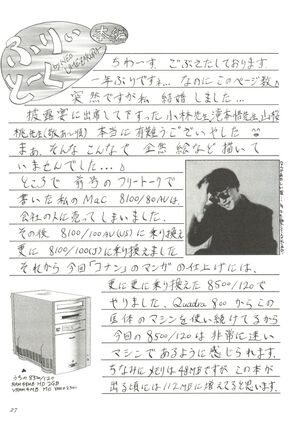 ふりぃとーく
本編
ちわーす。ごぶさたしております
一年ぶりですネ... なのにこのページ数♪
突然ですが私 結婚しました...
披露宴に出席して下すった小林先生 滝本悟先生 山桜
桃先生(敬あ〜順) 本当に有難うございやした
まぁ、そんなこんなで 全然 絵など描いて
いませんでした...♪
ところで 前号のフリートークで
書いた私の Mac 8100/80AVは、
会社の人に売ってしまいました。
その後 8100/100AV(US)に乗り換え
更に 8100/100(J)に乗り換えました
それから今回「コナン」のマンガの仕上げには、
更に更に乗り換えた 8500/120で
やりました。Quadra 800 からこの
筐体のマシンを使い続けてるから
今回の8500/120は 非常に速い
マシンであるように感じられます。
ちなみにメモリは48MBですが この本が
出る頃には 112MBに増えてると思います。
うちの8500/120
RAM 48MB HD 2GB
27